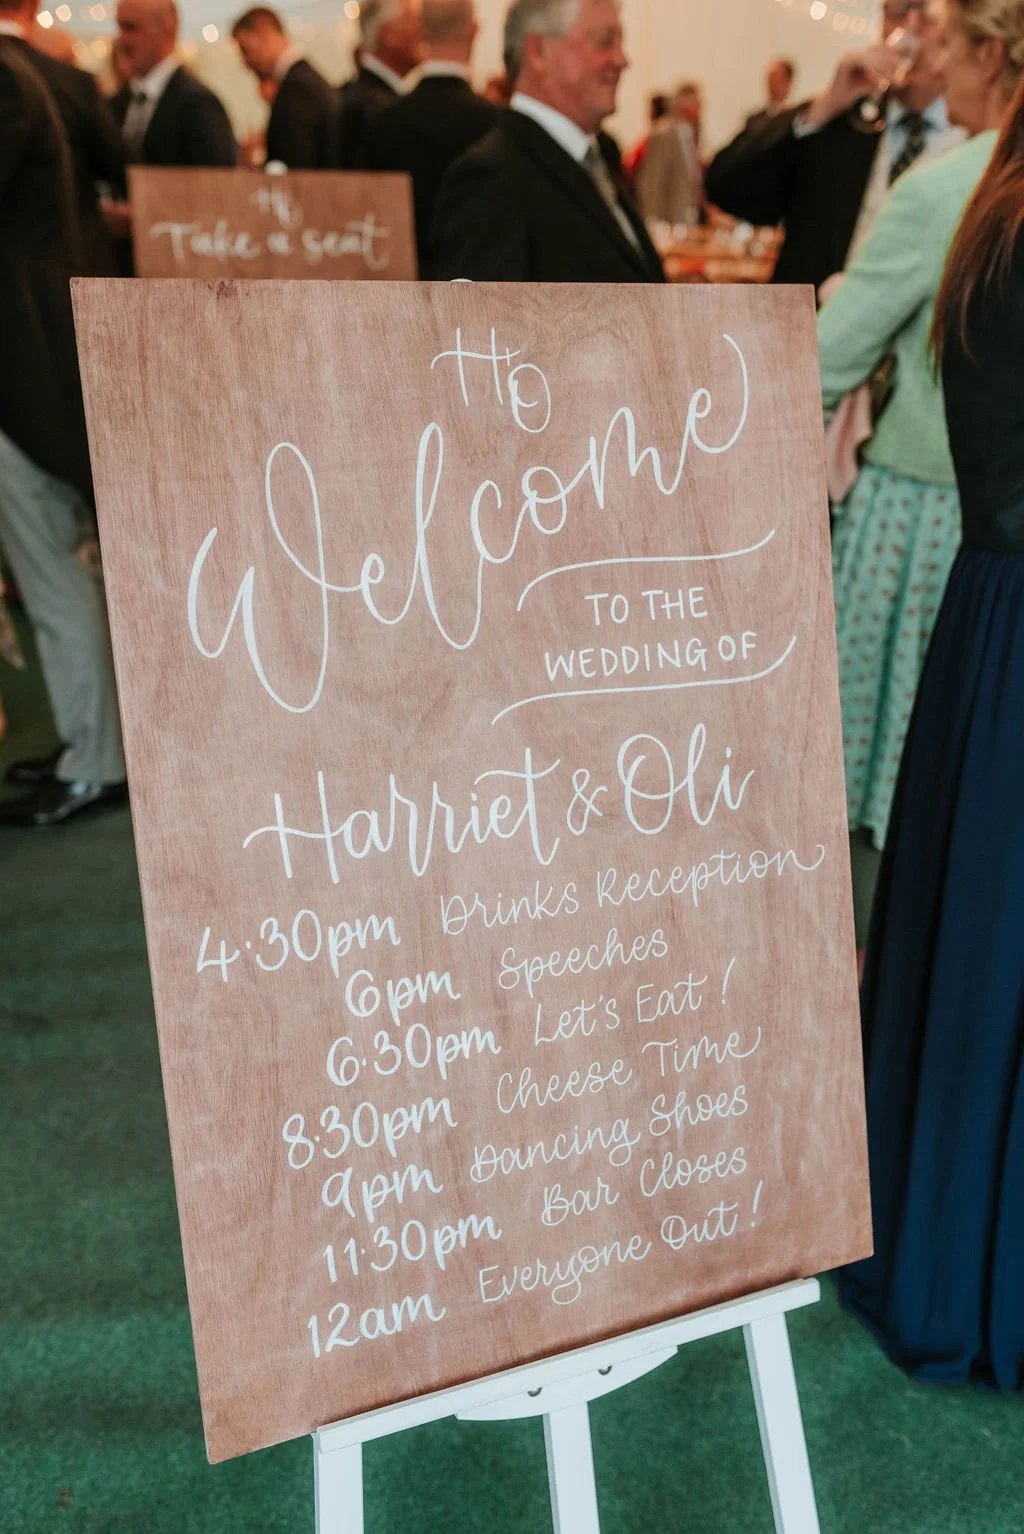 Take a seat
HO
Welcome
TO THE
WEDDING OF
Harriet & Oli
4:30pm Drinks Reception
6pm Speeches
6:30pm Let's Eat!
8:30pm Cheese Time
9pm Dancing Shoes
11:30pm Bar Closes
12am Everyone Out!